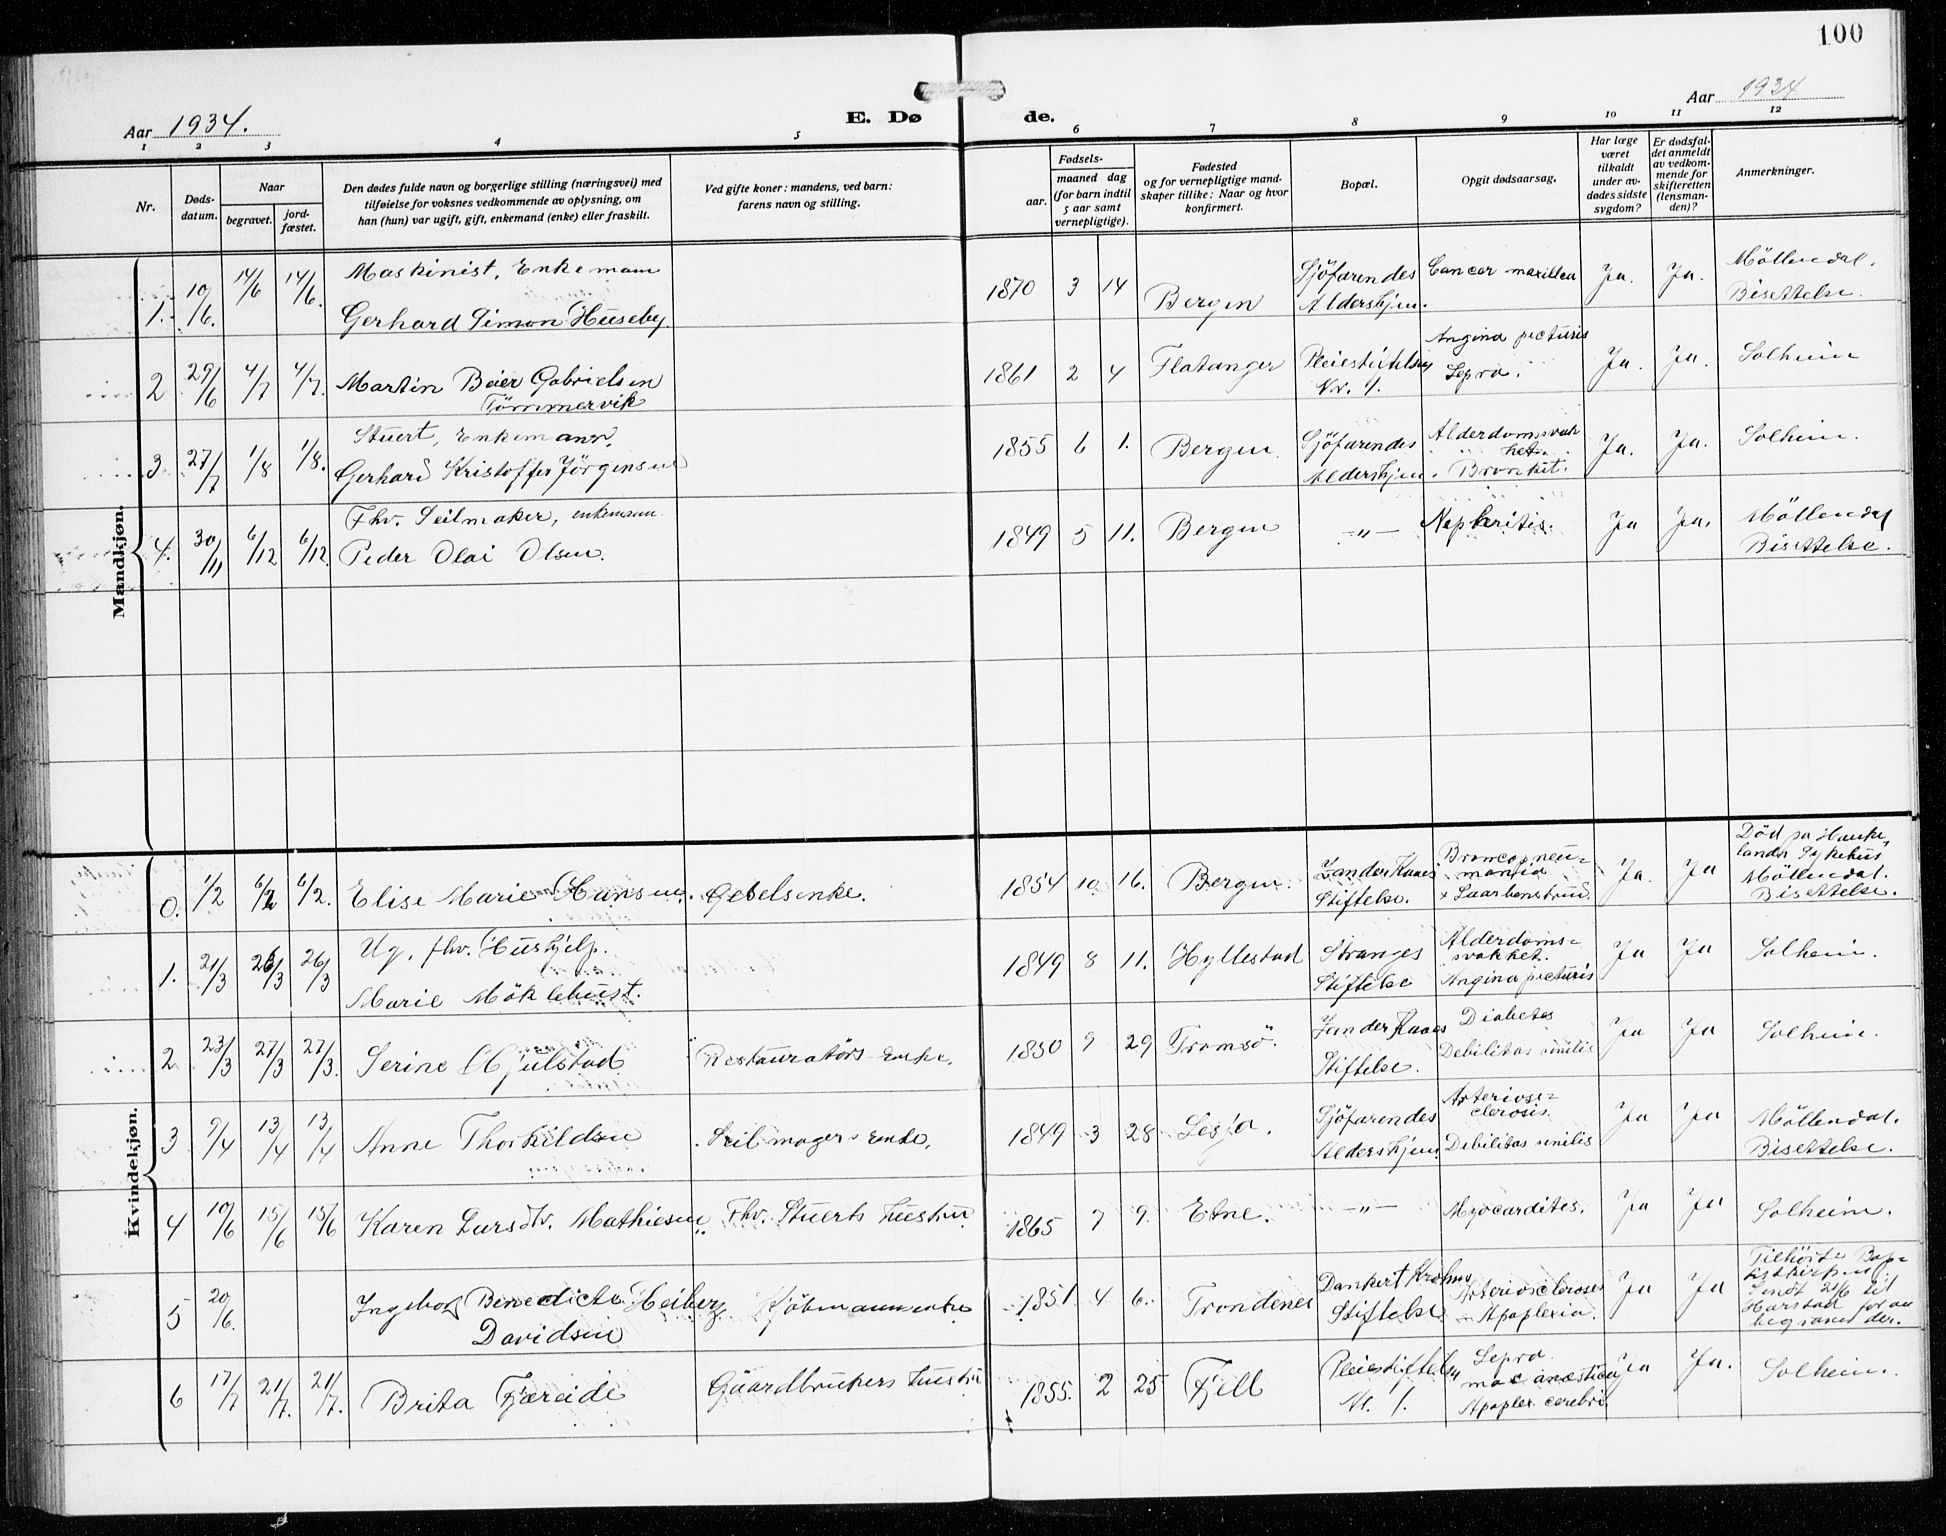 100
Aar 1934.
E. Dø
de.
Aar 1934
1 2 3 4 5 6 7 8 9 10 11 12
Nr.
Døds-
datum.
Naar
begravet.
jord-
fæstet.
Den dødes fulde navn og borgerlige stilling (næringsvei) med
tilføielse for voksnes vedkommende av oplysning, om
han (hun) var ugift, gift, enkemand (enke) eller fraskilt.
Ved gifte koner: mandens, ved barn:
farens navn og stilling.
Fødsels-
aar.
maaned dag
(for barn indtil
5 aar samt
vernepligtige).
Fødested
og for vernepligtige mand-
skaper tillike: Naar og hvor
konfirmert.
Bopæl.
Opgit dødsaarsag.
Har læge
været
tilkaldt
under av-
dødes sidste
sygdom?
Er dødsfal-
det anmeldt
av vedkom-
mende for
skifteretten
(lensman-
den)?
Anmerkninger.
Mandkjøn.
1. 10/6. 14/6 14/6. Maskinist, Enkemann
Gerhard Simon Huseby.
1870 3 14 Bergen
Sjöfarendes
Aldershjem.
Cancer maxillea
Ja. Ja.
Möllendal.
Bisettelse.
2 29/6 4/7 4/7. Martin Beier Gabrielsen
Tömmervik
1861 2 4 Flatanger
Pleiestiftelsen
Nr. 1.
Angina pecturis
Lepra.
Ja. Ja.
Solheim
3 27/7 1/8 1/8. Stuert, Enkemann.
Gerhard Kristoffer Jörgensen
1855 6 1. Bergen.
Sjöfarendes
Aldershjem.
Alderdomssvak
het.
Bronkit.
Ja. Ja.
Solheim.
4. 30/11 6/12 6/12. Fhv. Seilmaker, enkemann.
Peder Olai Olsen.
1849 5 11. Bergen
-"-
Nephritis.
Ja Ja.
Möllendal
Bisettelse.
Kvindekjøn.
0. 1/2 6/2 6/2. Elise Marie Hansen. Gebelsenke.
1854 10 16. Bergen.
Zander Kaaes
Stiftelse.
Broncopneu=
monia
+ Laarbensbrud.
Ja. Ja
Död på Hauke
lands Sykehus
Möllendal.
Bisettelse.
1. 21/3 26/3 26/3 Ug. fhv. Hushjelp.
Marie Möklebust.
1849 8 11. Hyllestad
Stranges
Stiftelse
Alderdoms=
svakket.
Angina pecturis
Ja Ja
Solheim.
2 23/3 27/3 27/3. Serine Hjulstad Restauratørs-Enke.
1850 9 29 Tromsö.
Zander Kaaes
Stiftelse.
Diabetes
Debilitas senilis
Ja Ja
Solheim.
3 9/4 13/4 13/4 Anne Thorkildsen Seilmagers Enke.
1849 3 28 Lesja.
Sjöfarendes
Aldershjem.
Arteriose=
clerosis.
Debilitas senilis
Ja Ja
Möllendal.
Bisettelse.
4 10/6 15/6 15/6 Karen Larsdtr. Mathiesen Fhv. Stuerts hustru
1865 7 9. Etne.
-"-
Myocardites.
Ja Ja
Solheim.
5 20/6. Ingeborg Benedicte Heiberg
Davidsen
Kjöbmannsenke
1851 4 6. Trondenes
Dankert Krohns
Stiftelse
Arteriosclerose
Apoplexia.
Ja Ja
Tilhörte Bap=
tistkirken
Sendt 21/6 til
Harstad for aa
begraves der.
6 17/7 21/7. 21/7. Brita Fjæreide Gaardbrukers hustru
1855. 2 25 Fjell
Pleiestiftelsen
Nr. 1.
Lepra
mac anæstica
Apoplex. cerebri.
Ja Ja.
Solheim.